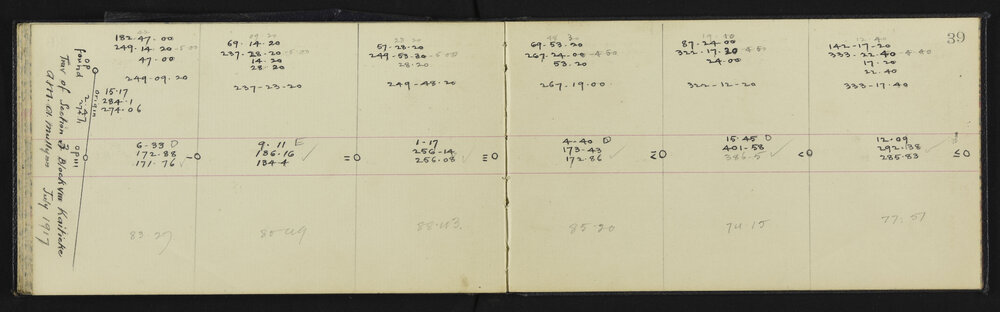 39
Trav of Section 3 Block VIII Kaitieke
July 1917
OP
found
origin
2.47
27th
OPIII
15.17
284.1
274.06
182.47.00
249.14.20-5.00
47.00
249.09.20
6-33 D
172.88
171.76
-0
83.27
69.14.20
237.28.20-5.00
14.20
28.20
237-23-20
9.11 E
186.16
184.4
=0
80.49
57-28-20
249-53-20-5.00
28.20
249-48.20
1-17
256-14
256.08
≡0
88.43
69-53.20
267.24.00-4.50
53.20
267.19.00
4-40 D
173-43
172.86
≤0
85.20
87-24.00
322.17.20-4.50
24.00
322-12-20
15.45 D
401-58
386-5
<0
74.15
142-17-20
333-22.40-4.40
17.20
22.40
333-17.40
12.09
292.38
285.83
≤0
77.51